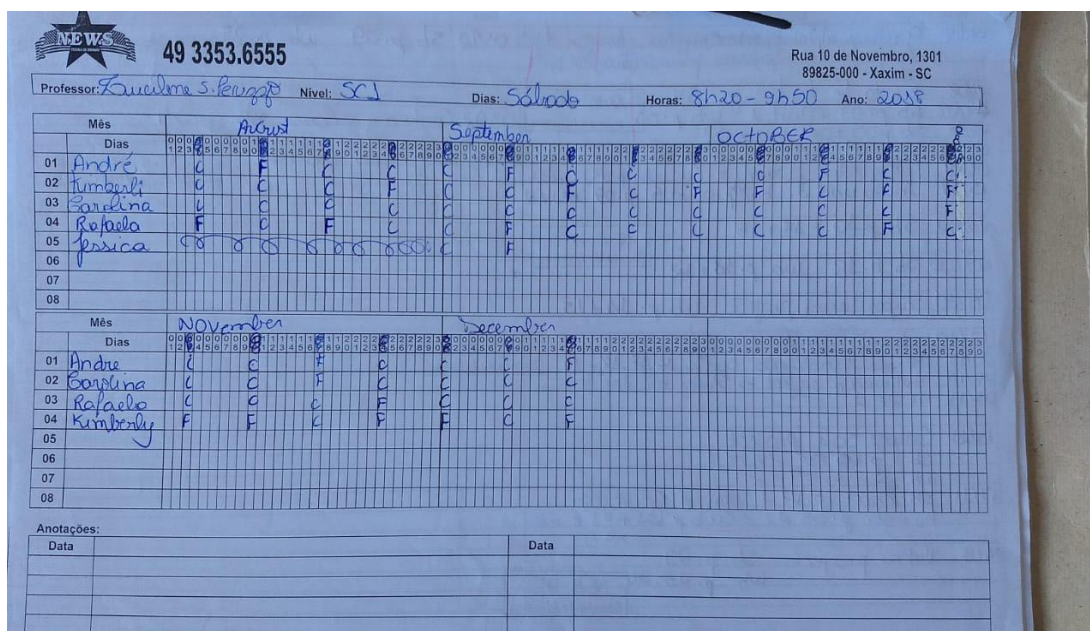 NEWS
49 3353.6555
Rua 10 de Novembro, 1301
89825-000 - Xaxim - SC
Professor: Nivel: SC1 Dias: Sábado Horas: 8h20 - 9h50 Ano: 2018
Mês August September OCTOBER
Dias
01 André C F C C C F C C C C F C C
02 Kimberli C C C F C C F C F F C F F
03 Carolina C C C C C C C C C C C C F
04 Rafaela F C F C C F C C C C C F C
05 Jessica C F
06
07
08
Mês NOvember December
Dias
01 Andre C C F C C C F
02 Carolina C C F C C C C
03 Rafaela C C C F C C C
04 Kimberly F F C F F C F
05
06
07
08
Anotações:
Data Data